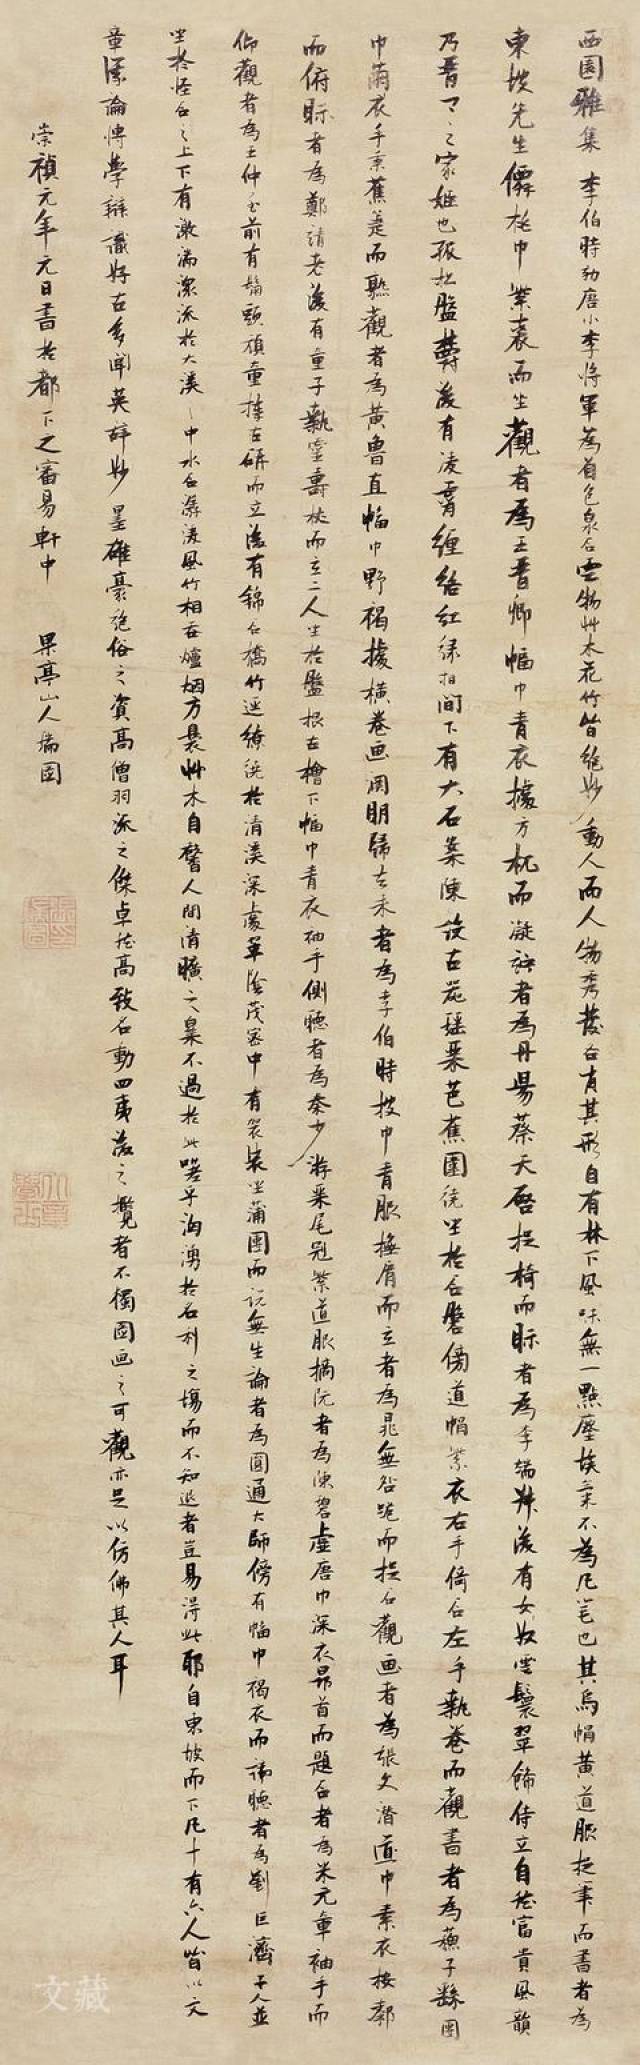 西園雅集 李伯時効唐小李將軍為著色泉石雲物艸木花竹皆絶妙動人而人物秀發各肖其形自有林下風味無一點塵埃氣不為凡筆也其烏帽黄道服捉筆而書者為
東坡先生僊桃巾紫裘而坐觀者為王晋卿幅巾青衣據方机而凝竚者為丹陽蔡天啓捉椅而眎者為李端叔後有女奴雲鬟翠飾侍立自然富貴風韻
乃晋卿之家姬也孤松盤欝後有凌霄纏絡紅緑相間下有大石案陳設古器瑶琹芭蕉圍繞坐於石磐傍道帽紫衣右手倚石左手執卷而觀書者為蘓子繇團
巾繭衣手秉蕉箑而熟觀者為黄魯直幅巾野褐據横卷画淵明歸去来者為李伯時披巾青服撫肩而立者為晁無咎跪而捉石觀画者為張文潜道巾素衣按膝
而俯眎者為鄭靖老後有童子執靈壽杖而立二人坐於盤根古檜下幅巾青衣袖手側聽者為秦少游琹尾冠紫道服摘阮者為陳碧虚唐巾深衣昻首而題石者為米元章袖手而
仰觀者為王仲至前有鬅頭頑童捧古硏而立後有錦石橋竹逕繚繞於清溪深處翠陰茂密中有袈裟坐蒲團而說無生論者為圓通大師傍有幅巾褐衣而諦聽者為劉巨濟二人並
坐於怪石之上下有激湍潨流於大溪之中水石潺湲風竹相吞爐烟方裊艸木自馨人間清曠之樂不過於此嗟乎洶湧於名利之塲而不知退者豈易得此耶自東坡而下凡十有六人皆以文
章議論愽學辯識好古多聞英辭妙墨雄豪絶俗之資高僧羽流之傑卓然高致名動四夷後之攬者不獨图画之可觀亦足以仿佛其人耳
崇禎元年元日書於都下之審易軒中 果亭山人瑞图
文藏